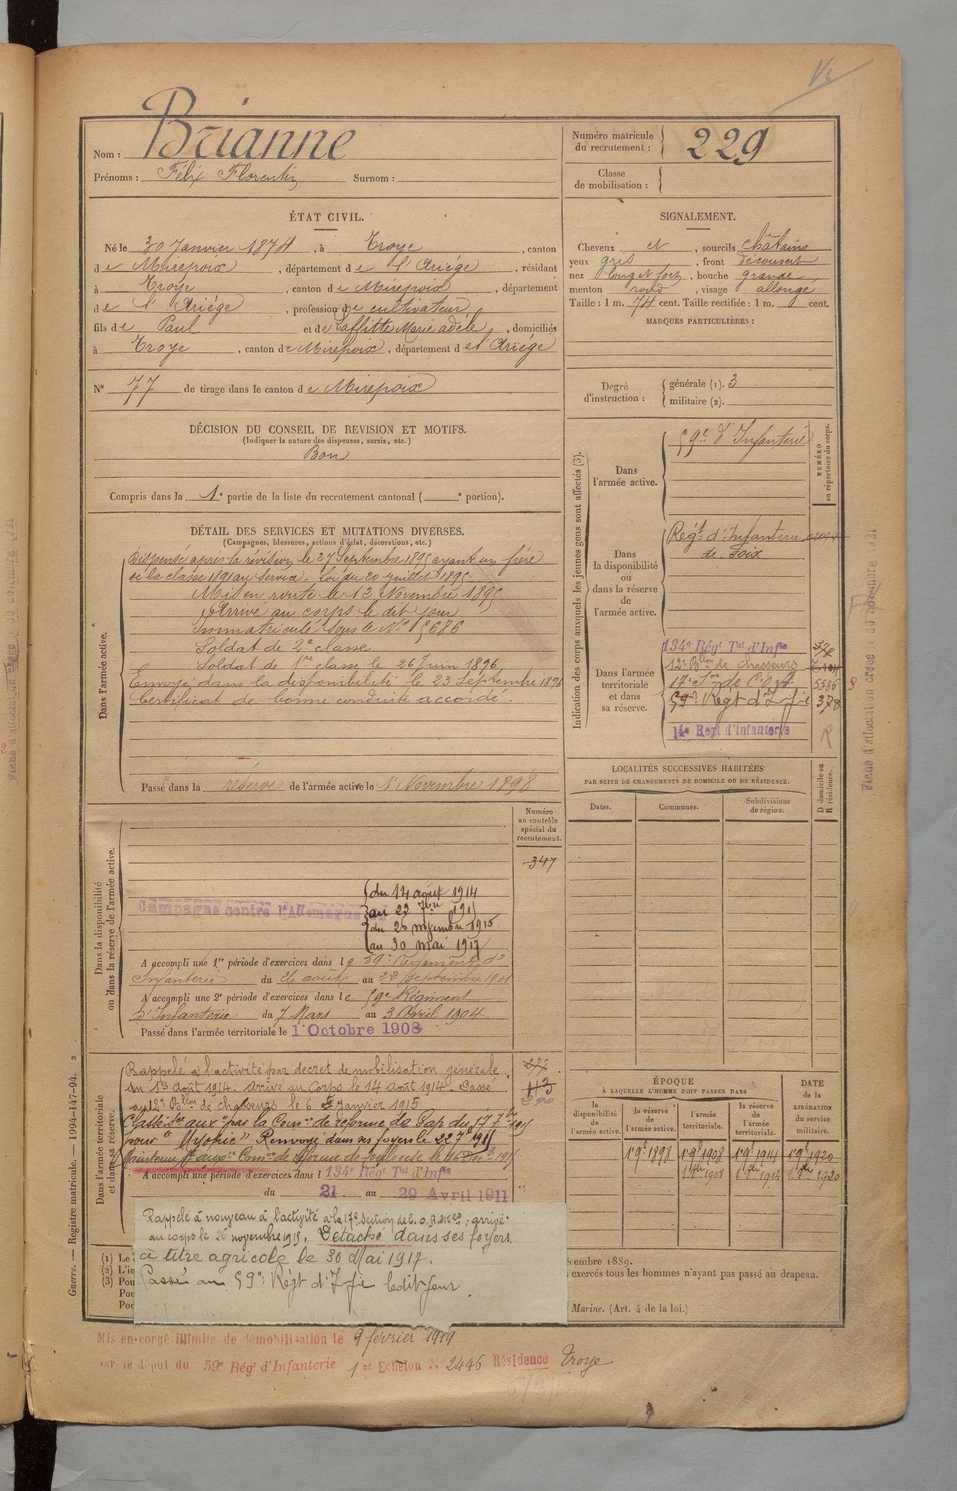 Nom : Brianne
Prénoms : Félix Florentin Surnom :
Numéro matricule du recrutement : 229
Classe de mobilisation :
ÉTAT CIVIL.
Né le 30 Janvier 1874, à Troye, canton
de Mirepoix, département de l'Ariége, résidant
à Troye, canton de Mirepoix, département
de l'Ariége, profession de cultivateur
fils de Paul et de Laffitte Marie adèle, domiciliés
à Troye, canton de Mirepoix, département de l'Ariége
N° 77 de tirage dans le canton de Mirepoix
SIGNALEMENT.
Cheveux et, sourcils châtains
yeux gris, front découvert
nez long et fort, bouche grande
menton rond, visage allongé
Taille : 1 m. 74 cent. Taille rectifiée : 1 m. cent.
MARQUES PARTICULIÈRES :
Degré d'instruction : générale (1). 3
militaire (2).
DÉCISION DU CONSEIL DE REVISION ET MOTIFS.
(Indiquer la nature des dispenses, sursis, etc.)
Bon
Compris dans la 1e partie de la liste du recrutement cantonal ( e portion).
DÉTAIL DES SERVICES ET MUTATIONS DIVERSES.
(Campagnes, blessures, actions d'éclat, décorations, etc.)
Dans l'armée active.
Dispensé après la révision le 27 Septembre 1895 ayant un frère
de la classe 1891 au service. Loi du 20 Juillet 1895.
Mis en route le 13 Novembre 1895
Arrivé au corps le dit jour
Immatriculé sous le N° 15686
Soldat de 2e classe
Soldat de 1re classe le 26 Juin 1896
Envoyé dans la disponibilité le 23 Septembre 1896
Certificat de bonne conduite accordé
Passé dans la réserve de l'armée active le 1er Novembre 1898
Indication des corps auxquels les jeunes gens sont affectés (3).
NUMÉRO au répertoire du corps.
Dans l'armée active.
59e d'Infanterie
Dans la disponibilité ou dans la réserve de l'armée active.
Régt d'Infanterie
de Foix
Dans l'armée territoriale et dans sa réserve.
134e Rég Tal d'Infie
12e Bllon de chasseurs
17e Son de C.O.A. 5386
59e Régt d'Ifie 378
14e Régt d'Infanterie
Numéro au contrôle spécial du recrutement.
347
Dans la disponibilité ou dans la réserve de l'armée active.
Campagne contre l'Allemagne
du 14 août 1914
au 22 7bre 191
du 26 novembre 1915
au 30 mai 1917
A accompli une 1re période d'exercices dans le 59e Régiment d'
Infanterie du août au Septembre 1901
A accompli une 2e période d'exercices dans le 59e Régiment
d'Infanterie du 7 Mars au 3 Avril 1904
Passé dans l'armée territoriale le 1 Octobre 1908
LOCALITÉS SUCCESSIVES HABITÉES
PAR SUITE DE CHANGEMENTS DE DOMICILE OU DE RÉSIDENCE.
Dates. Communes. Subdivisions de région. D domicile ou R résidence.
Dans l'armée territoriale et dans sa réserve.
Rappelé à l'activité par décret de mobilisation générale
du 1er Août 1914. Arrivé au Corps le 14 Août 1914. Passé
au 12e Bllon de chasseurs le 6 Janvier 1915
pour "Myopie" Renvoyé dans ses foyers le 22 7bre 1915
A accompli une période d'exercices dans l 134e Rég Tal d'Infie
du 21 au 29 Avril 1911
Rappelé à nouveau à l'activité à la 17e Section de C.O.A. ; arrivé
au corps le 26 novembre 1915. Détaché dans ses foyers
à titre agricole le 30 Mai 1917.
Passé au 59e Régt d'Ifie ledit jour.
ÉPOQUE
À LAQUELLE L'HOMME DOIT PASSER DANS
la disponibilité de l'armée active. la réserve de l'armée active. l'armée territoriale. la réserve de l'armée territoriale.
DATE de la LIBÉRATION du service militaire.
1er 9bre 1898 1er 9bre 1908 1er 9bre 1914 1er 9bre 1920
1er 8bre 1908 1er 8bre 1914 1er 8bre 1920
(1) Le
(2) L'in
(3) Pou
Pou
Pou
cembre 1889.
exercés tous les hommes n'ayant pas passé au drapeau.
Marine. (Art. 4 de la loi.)
Guerre. — Registre matricule. — 1994-147-94.
Mis en congé illimité de démobilisation le 9 février 1919
par le dépôt du 59e Rég d'Infanterie 1er Echelon N° 2446 Résidence Troye